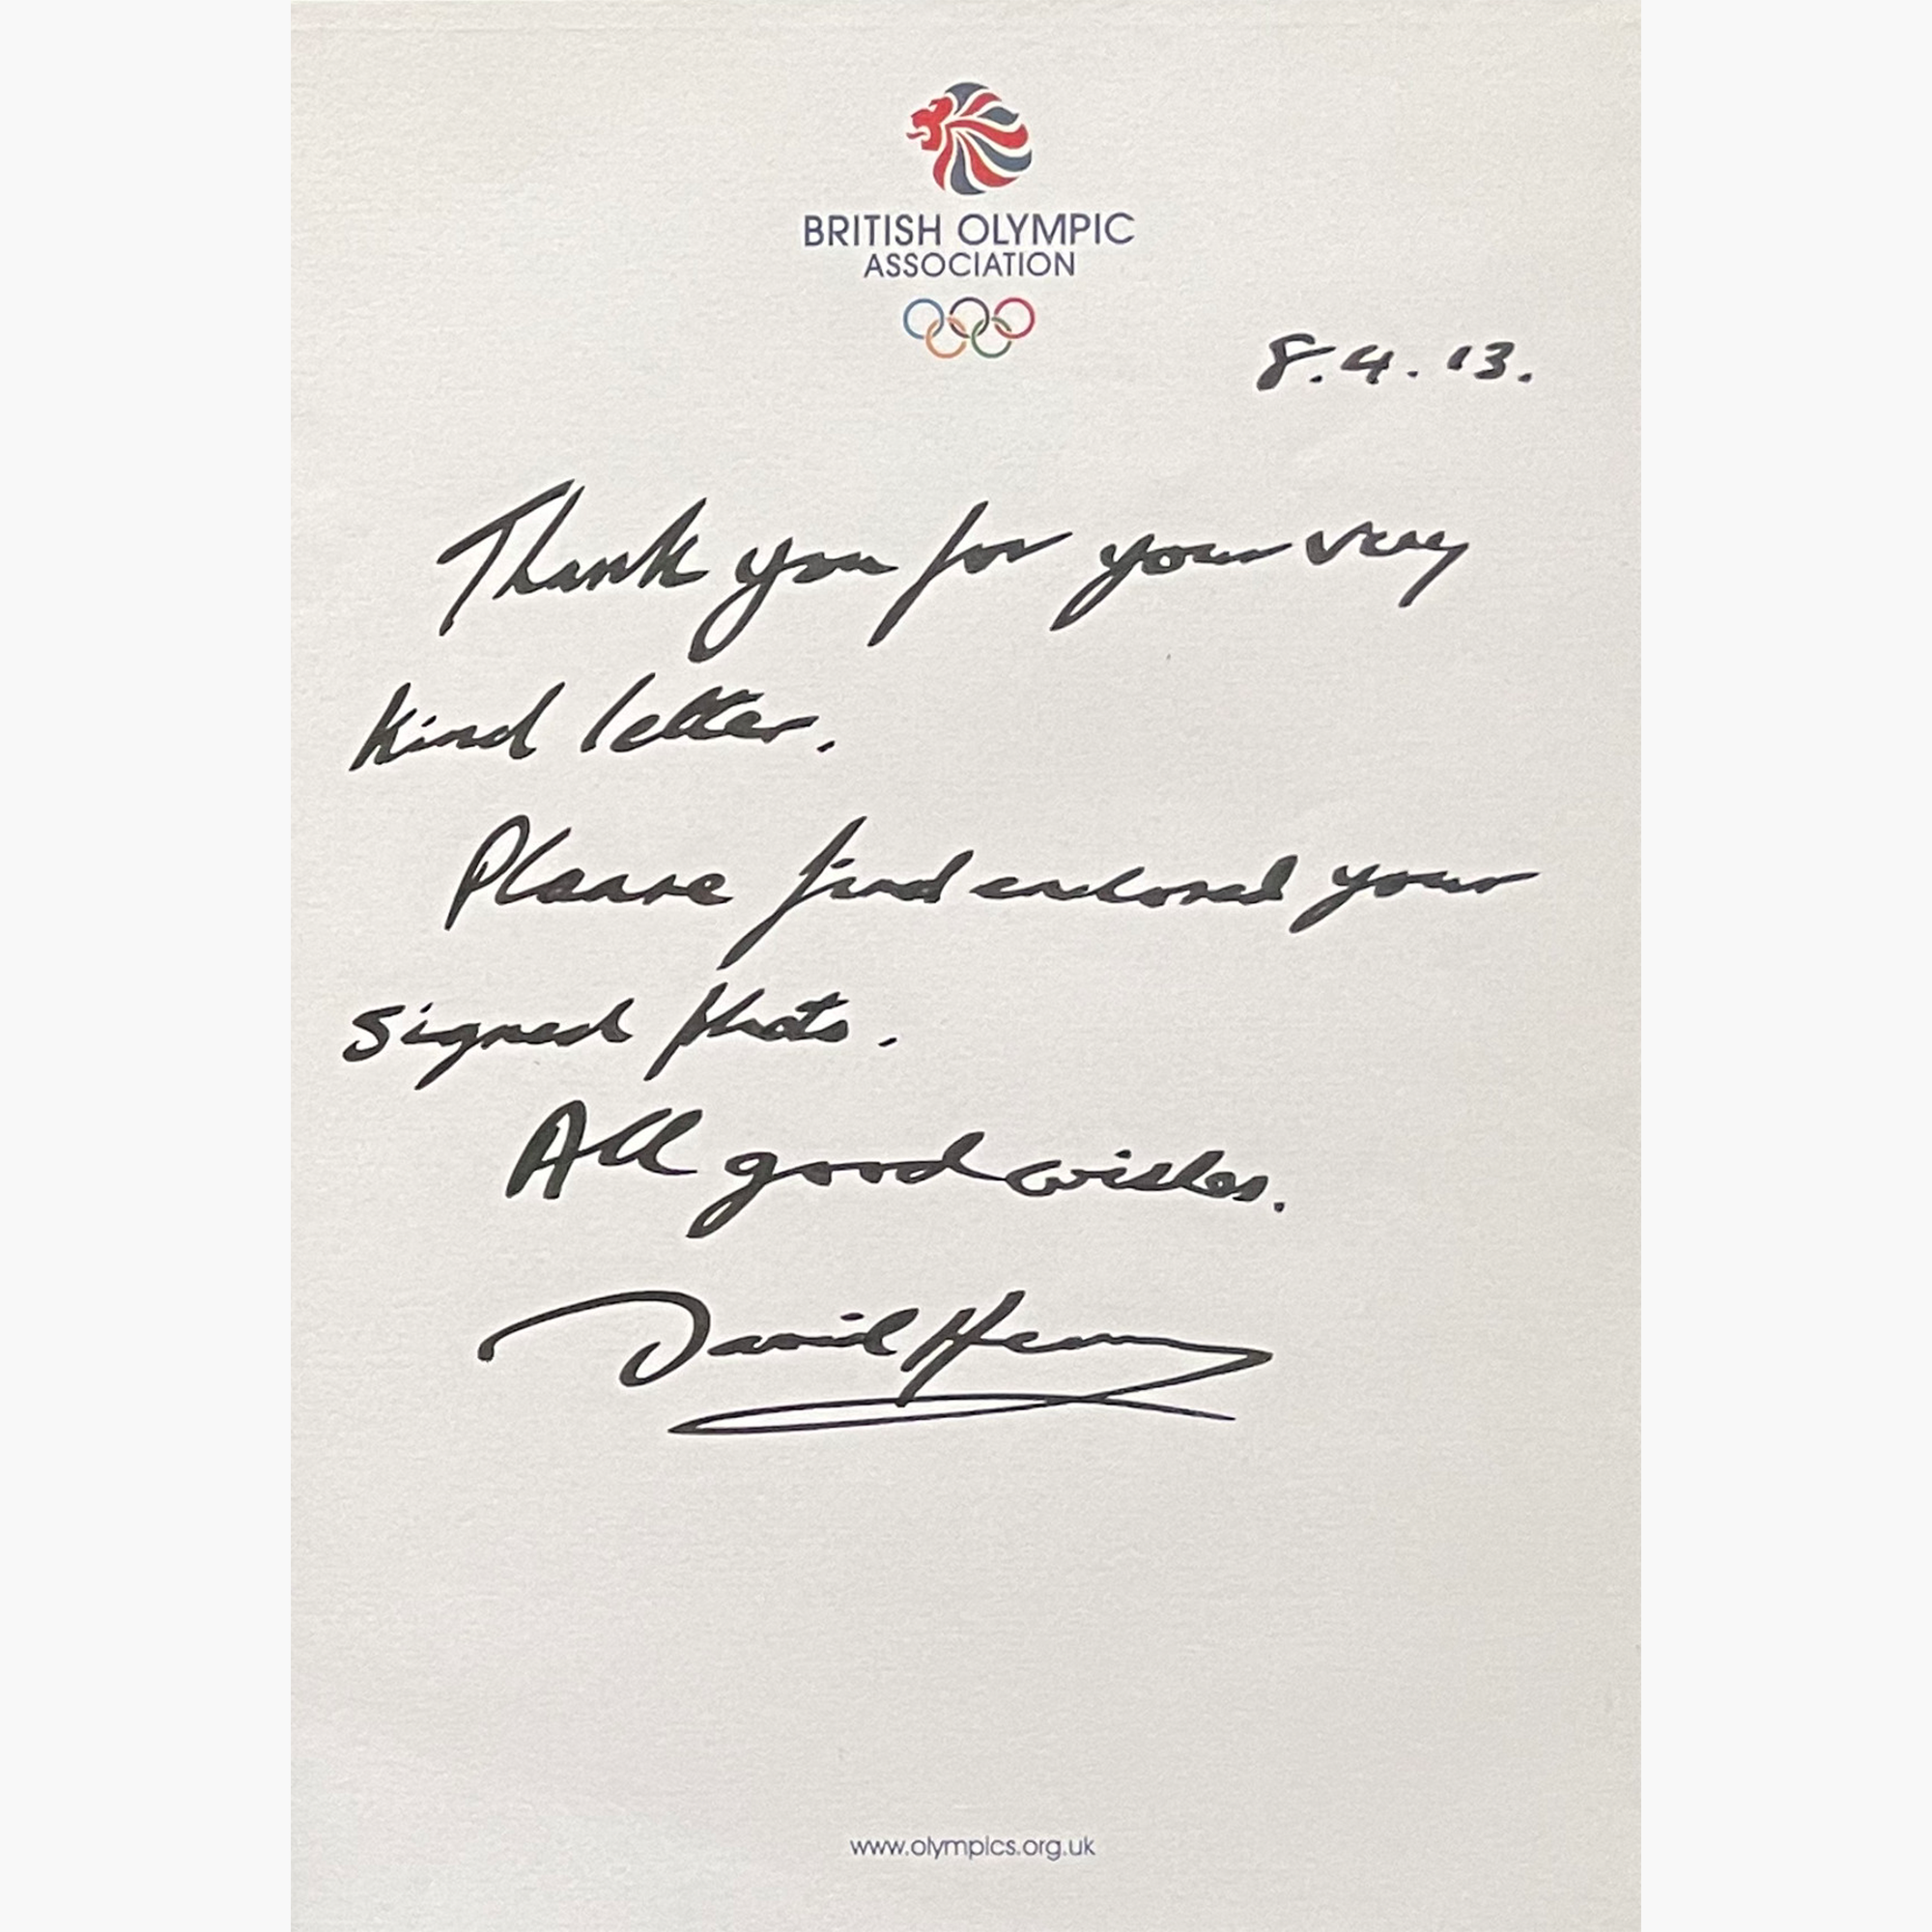 BRITISH OLYMPIC
ASSOCIATION
8.4.13.
Thank you for your very
kind letter.
Please find enclosed your
signed photo.
All good wishes.
David Hemery
www.olympics.org.uk